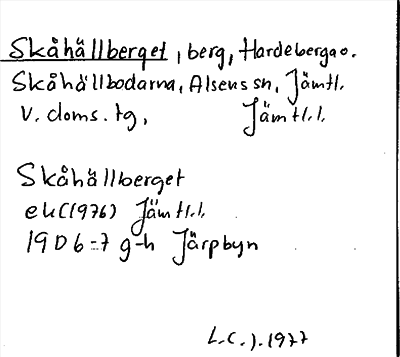 Skåhällberget, berg, Hardebergao.
Skåhällbodarna, Alsens sn, Jämtl.
V. doms. tg, Jämtl.l.
Skåhällberget
ek (1976) Jämtl.l.
19D 6-7 g-h Järpbyn
L.C.J. 1977